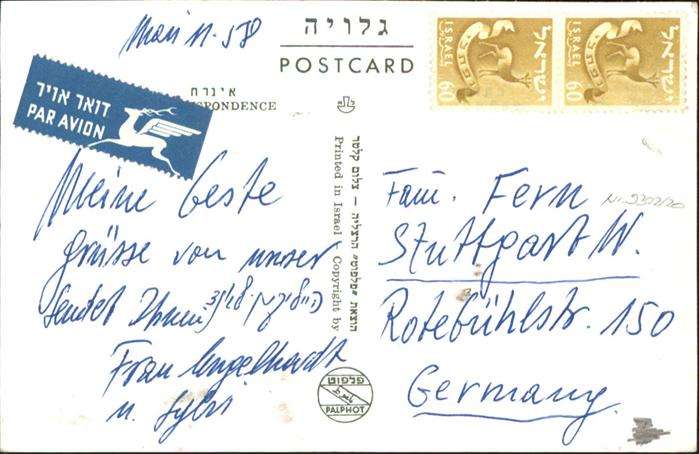 גלויה
POSTCARD
Mai 11. 58
ISRAEL
ישראל
60
ISRAEL
ישראל
60
דואר אויר
PAR AVION
אינרת
SPONDENCE
Meine beste
Grüsse von unser
sendet Ihnen
Frau Engelhardt
u. Sylvi
הוצאת "פלפוט" הרצליה – צלום קלטר
Printed in Israel – Copyright by
פלפוט
PALPHOT
Fam. Fern
Stuttgart W.
Rotebühlstr. 150
Germany.